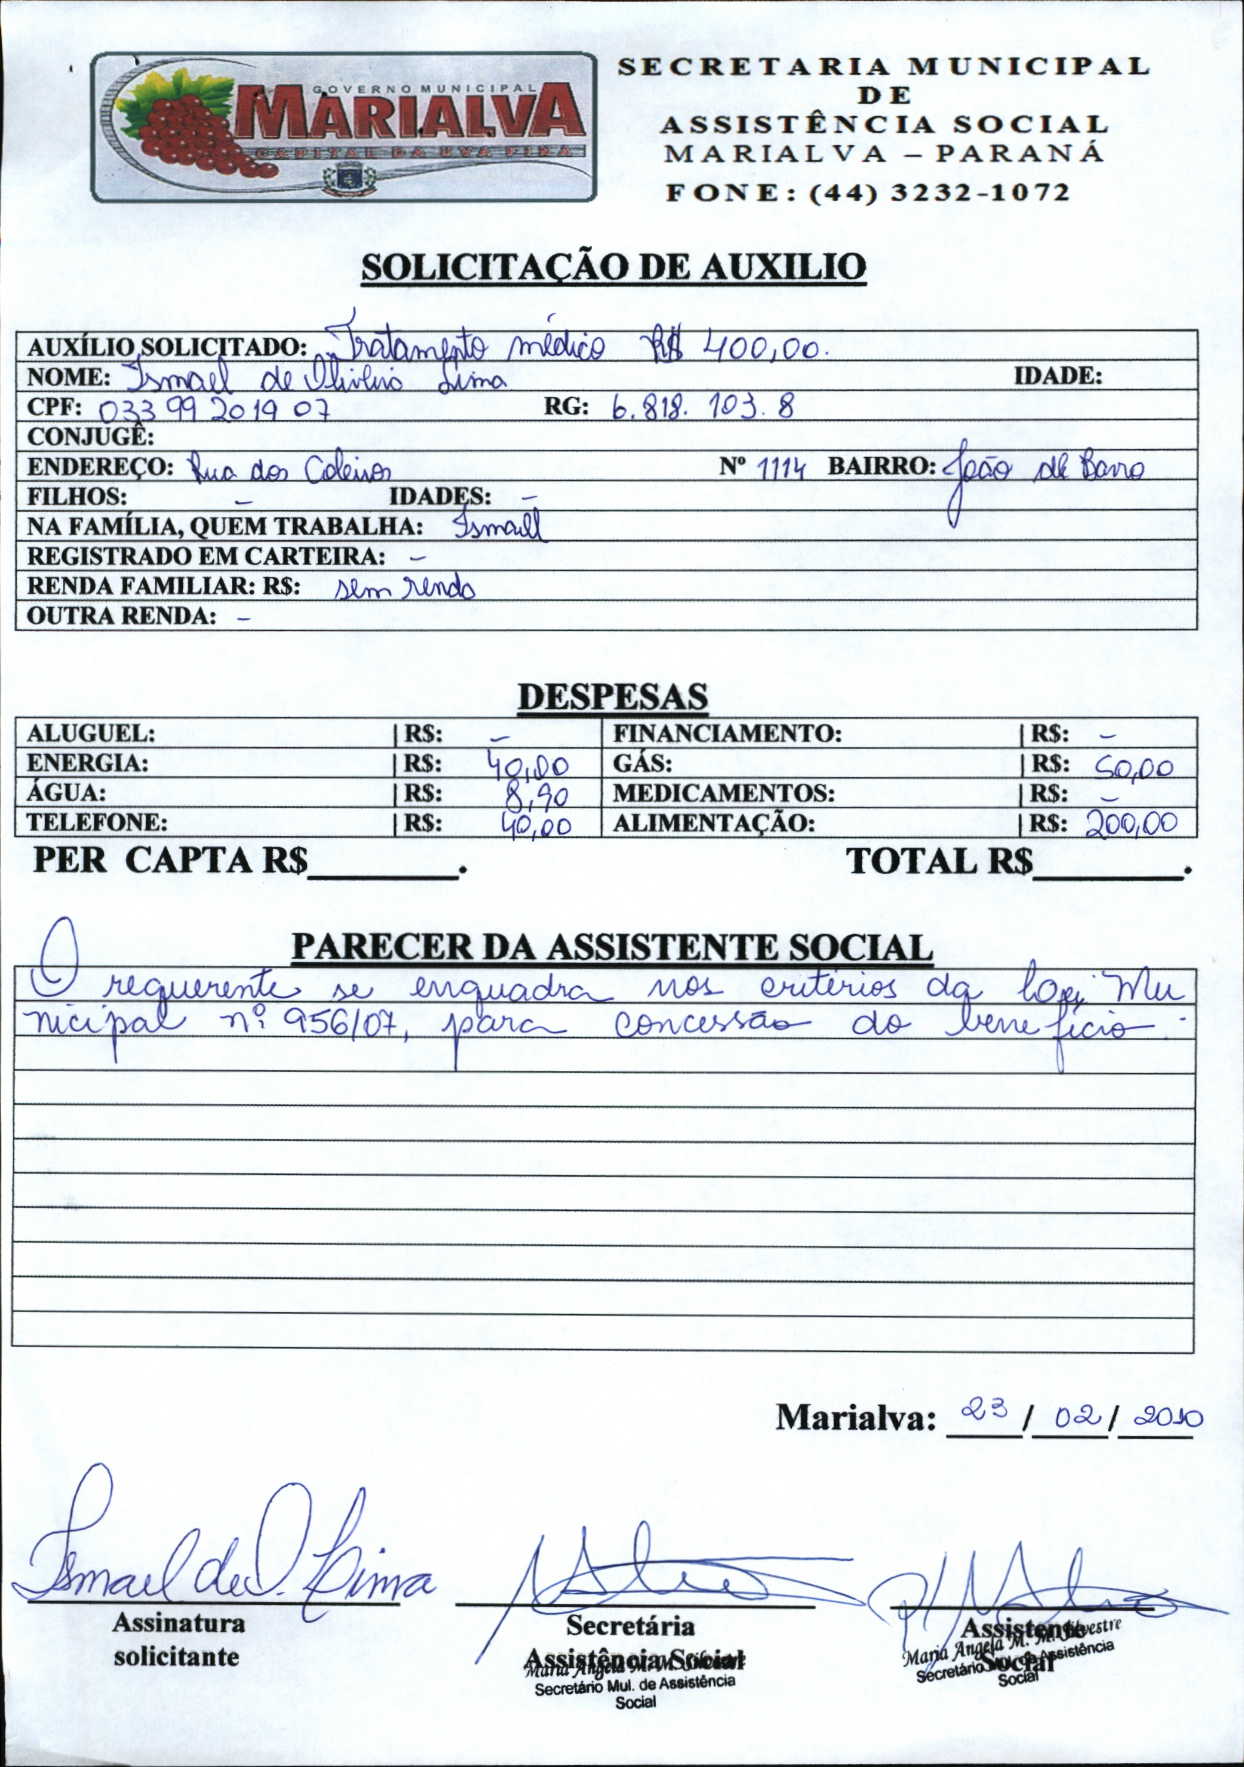 GOVERNO MUNICIPAL
MARIALVA
CAPITAL DA UVA FINA
SECRETARIA MUNICIPAL
DE
ASSISTÊNCIA SOCIAL
MARIALVA – PARANÁ
FONE: (44) 3232-1072
SOLICITAÇÃO DE AUXILIO
AUXÍLIO SOLICITADO: Tratamento médico R$ 400,00.
NOME: Ismael de Oliveira Lima IDADE:
CPF: 033 99 2019 07 RG: 6.818.103.8
CONJUGÊ:
ENDEREÇO: Rua dos Coleiros Nº 1114 BAIRRO: João de Barro
FILHOS: – IDADES: –
NA FAMÍLIA, QUEM TRABALHA: Ismael
REGISTRADO EM CARTEIRA: –
RENDA FAMILIAR: R$: sem renda
OUTRA RENDA: –
DESPESAS
ALUGUEL: | R$: – FINANCIAMENTO: | R$: –
ENERGIA: | R$: 40,00 GÁS: | R$: 50,00
ÁGUA: | R$: 8,90 MEDICAMENTOS: | R$: –
TELEFONE: | R$: 40,00 ALIMENTAÇÃO: | R$: 200,00
PER CAPTA R$________. TOTAL R$________.
PARECER DA ASSISTENTE SOCIAL
O requerente se enquadra nos critérios da Lei Mu
nicipal nº 956/07, para concessão do benefício.
Marialva: 23 / 02 / 2010
Ismael de O. Lima
Assinatura
solicitante
Secretária
Assistência Social
Maria Angela M. M. Silvestre
Secretário Mul. de Assistência
Social
Assistente
Social
Maria Angela M. M. Silvestre
Secretário Mul. de Assistência
Social